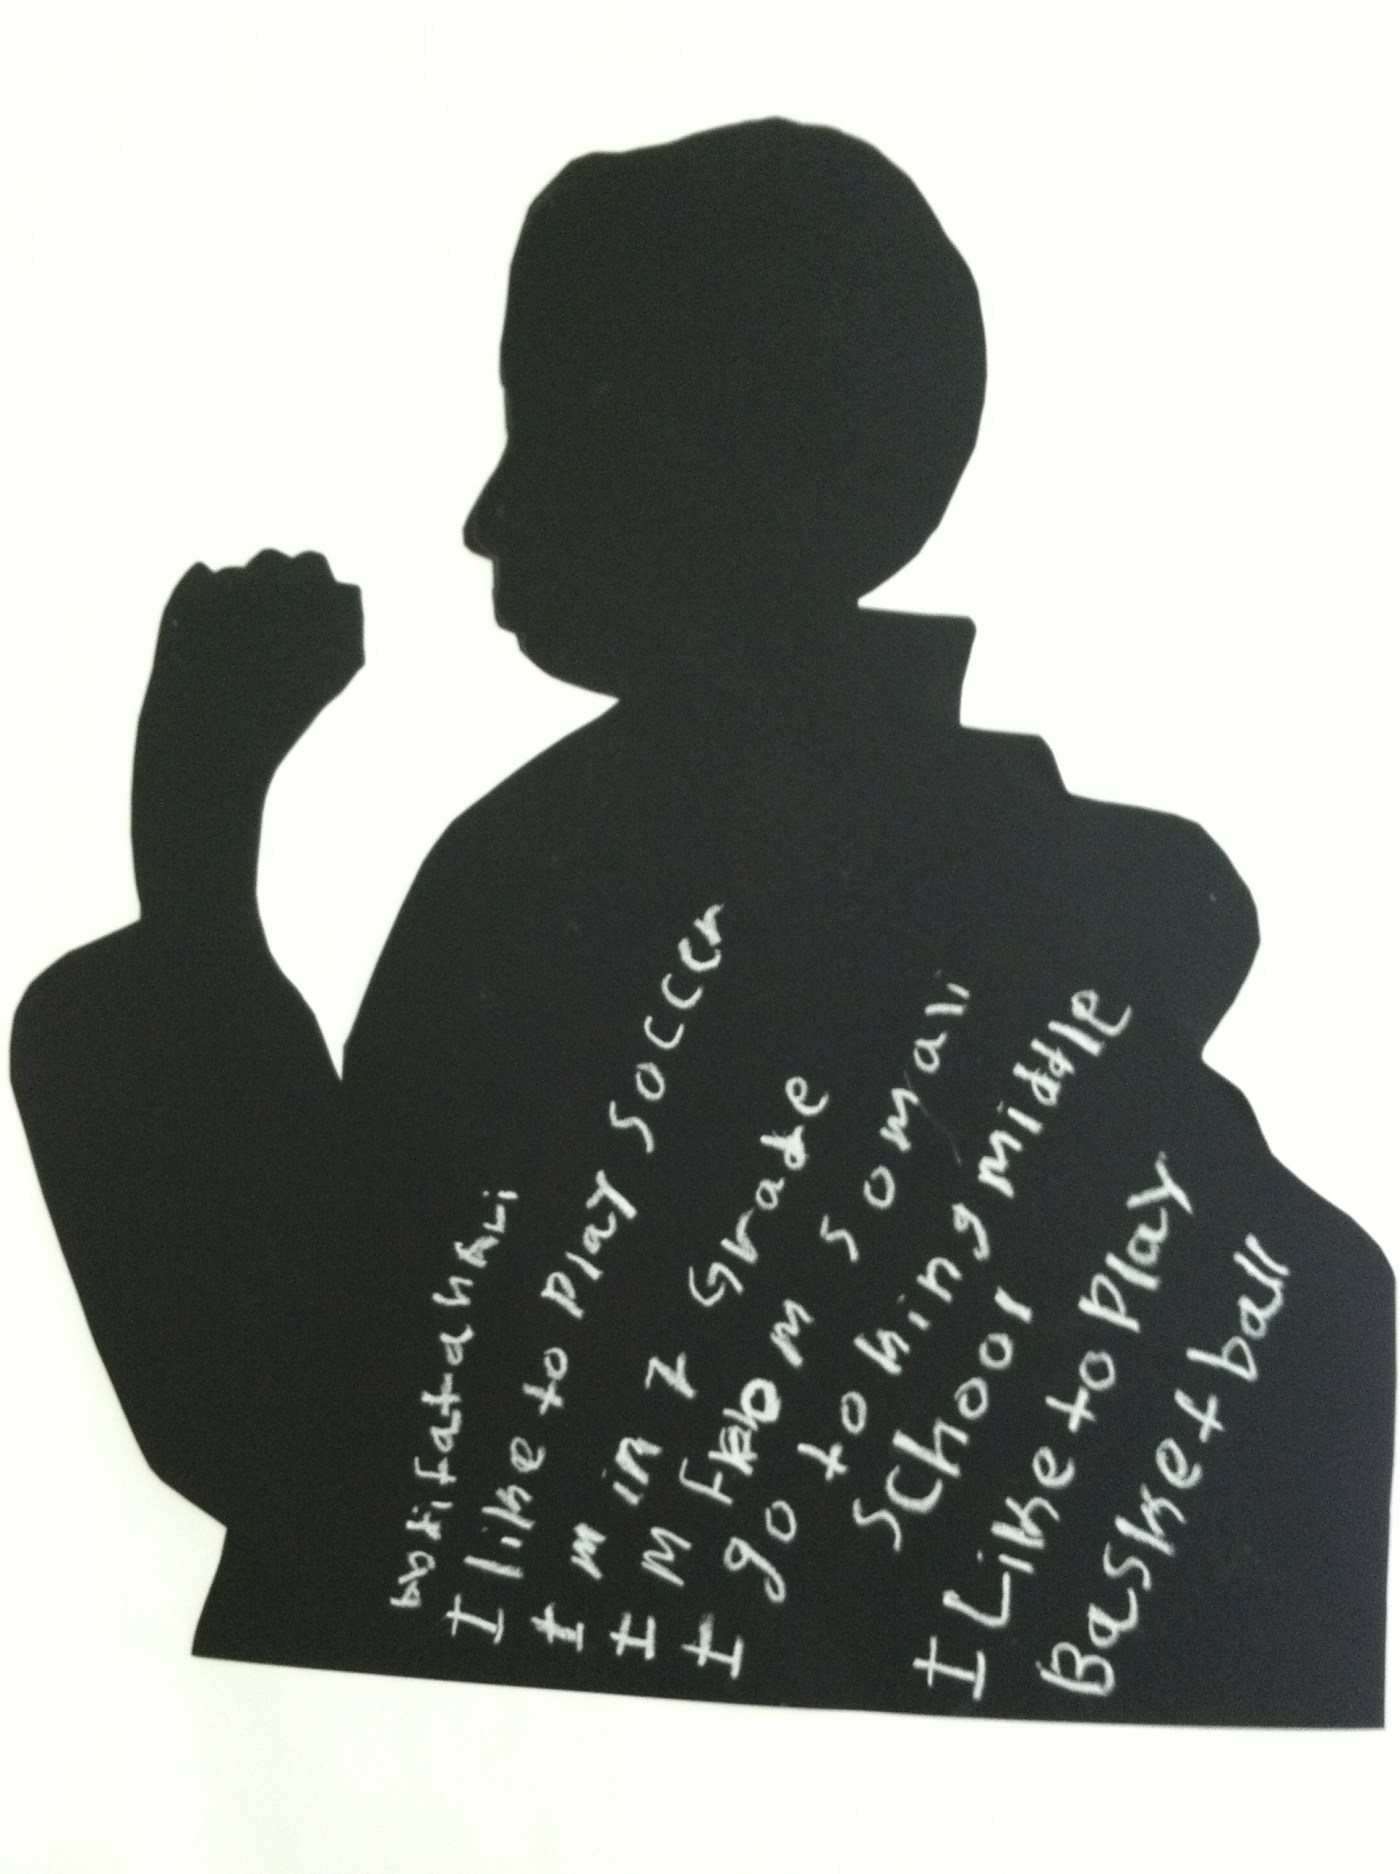 I like to play soccer
I m in 7 Grade
I m from somali
I go to hing middle
school
I Like to play
Basket ball